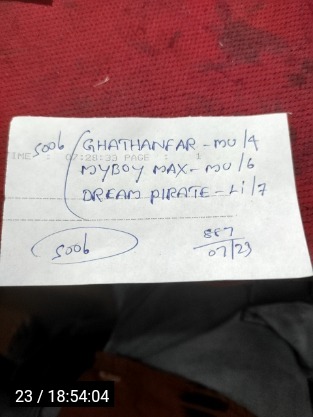 500b GHATHANFAR - MU/4
TIME : 07:28:33 PAGE : 1
MYBOY MAX - MU/6
DREAM PIRATE - Li/7
500b
887
07/23
23 / 18:54:04